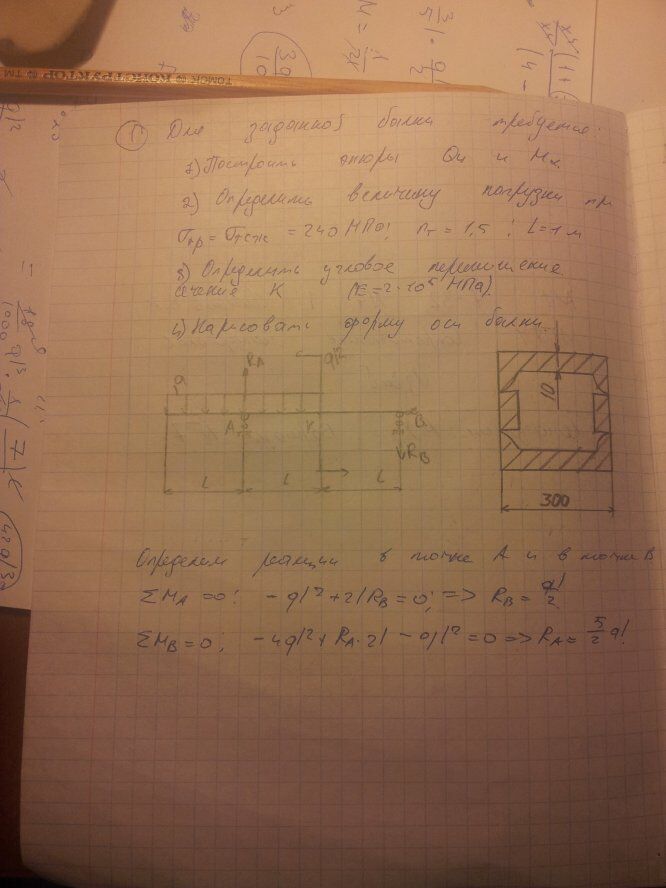 ① Для заданной балки требуется:
1) Построить эпюры Qy и Mx.
2) Определить величину нагрузки при
σтр = σтсж = 240 МПа; nт = 1,5 ; L = 1 м
3) Определить угловое перемещение
сечение K (E = 2·10⁵ МПа).
4) Нарисовать форму оси балки.
q
RA
ql²
A
K
B
RB
L
L
L
10
300
Определим реакции в точке A и в точке B
ΣMA = 0: -ql² + 2lRB = 0; => RB = ql/2
ΣMB = 0; -4ql² + RA·2l - ql² = 0 => RA = 5/2 ql.
ТОМСК КОНСТРУКТОР ТМ
3q/10